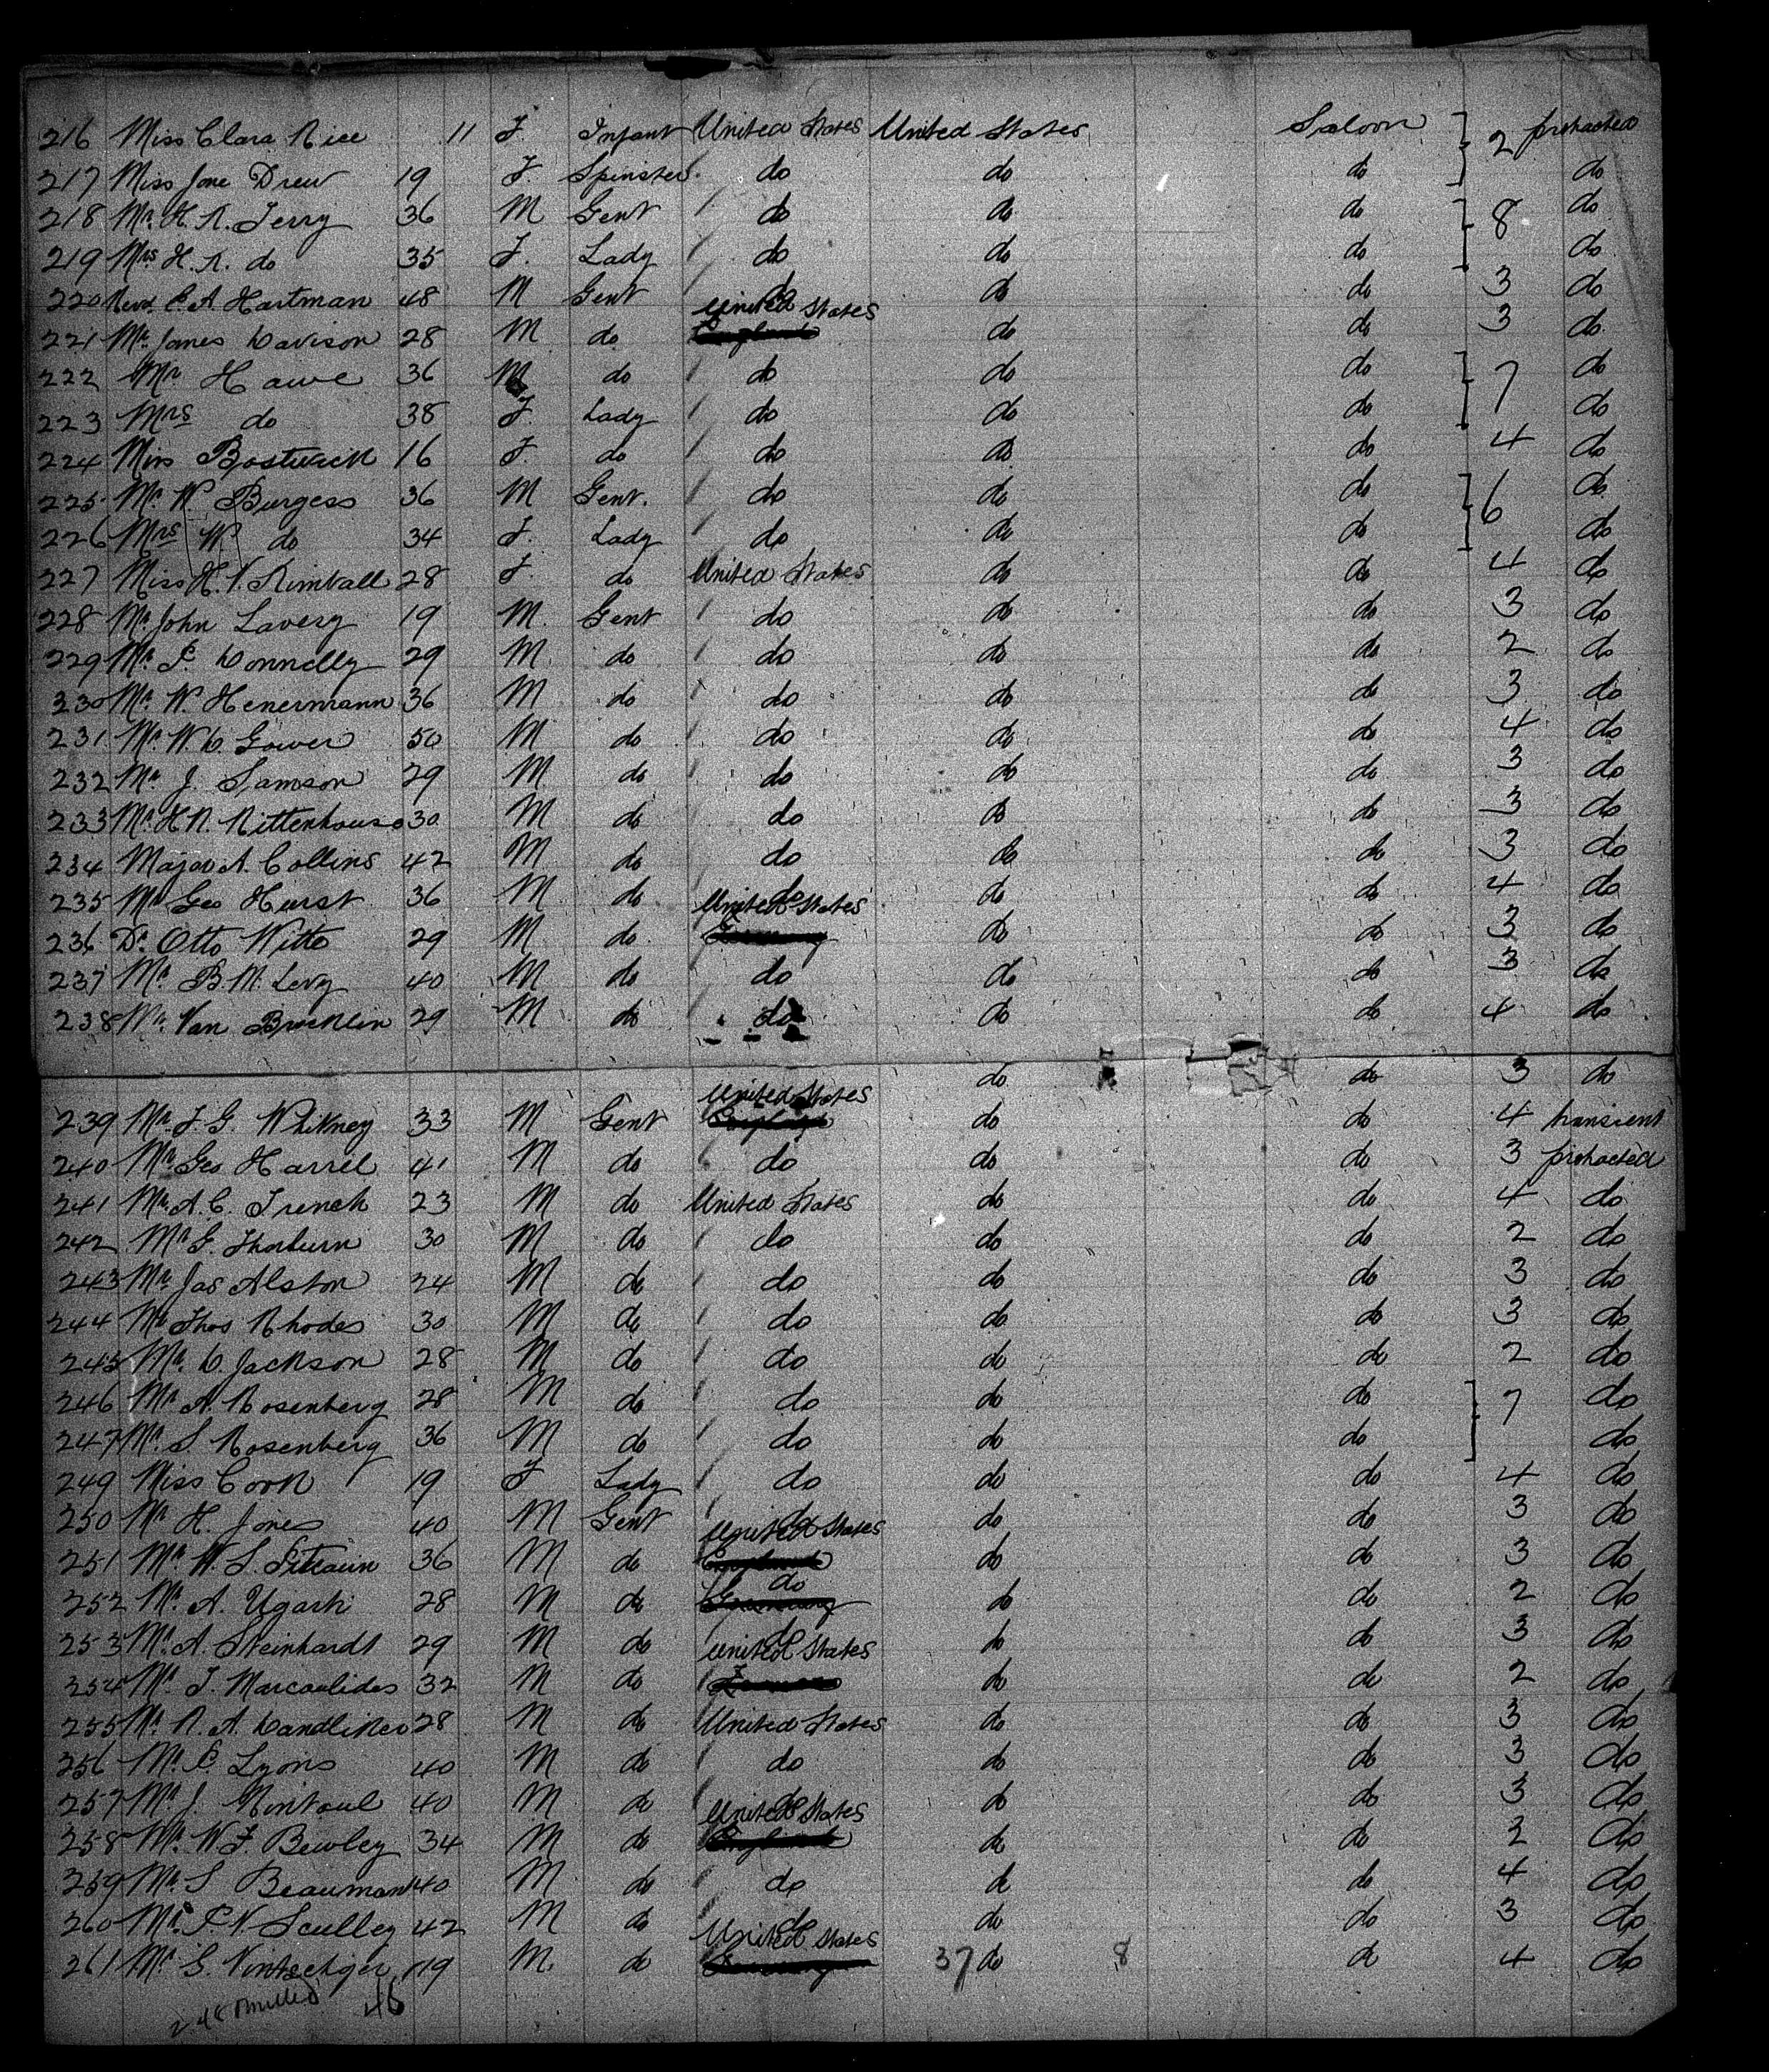 216 Miss Clara Rice 11 F. Infant United States United States Saloon 2 protracted
217 Miss Jane Drew 19 F. Spinster do do do do
218 Mr. H. R. Terry 36 M Gent do do do 8 do
219 Mrs H. R. do 35 F. Lady do do do do
220 Revd. C. A. Hartman 48 M Gent do do do 3 do
221 Mr. James Davison 28 M do United States do do 3 do
222 Mr Hawe 36 M do do do do 7 do
223 Mrs do 38 F. Lady do do do do
224 Miss Bostwick 16 F. do do do do 4 do
225 Mr. W. Burgess 36 M Gent. do do do 6 do
226 Mrs W do 34 F. Lady do do do do
227 Miss H. V. Kimball 28 F. do United States do do 4 do
228 Mr. John Lavery 19 M. Gent do do do 3 do
229 Mr. P. Donnelly 29 M. do do do do 2 do
230 Mr. W. Henermann 36 M do do do do 3 do
231 Mr. W. D. Gower 50 M do do do do 4 do
232 Mr J. Samson 29 M. do do do do 3 do
233 Mr. H. R. Rittenhouse 30 M do do do do 3 do
234 Major A. Collins 42 M do do do do 3 do
235 Mr Geo Hurst 36 M do do do do 4 do
236 Dr. Otto Witte 29 M. do United States Germany do do 3 do
237 Mr. B. M. Levy 40 M do do do do 3 do
238 Mr. Van Brocklin 29 M do do do do 4 do
do do 3 do
239 Mr. J. G. Whitney 33 M Gent United States England do do 4 transient
240 Mr. Geo Harrel 41 M do do do do 3 protracted
241 Mr. A. C. French 23 M do United States do do 4 do
242 Mr G. Thorburn 30 M do do do do 2 do
243 Mr Jas Alston 24 M do do do do 3 do
244 Mr Thos Rhodes 30 M do do do do 3 do
245 Mr. D. Jackson 28 M do do do do 2 do
246 Mr A. Rosenberg 28 M do do do do 7 do
247 Mr. S. Rosenberg 36 M do do do do do
249 Miss Cook 19 F Lady do do do 4 do
250 Mr H. Jones 40 M Gent do do do 3 do
251 Mr W. S. 36 M do United States England do do 3 do
252 Mr. A. Ugarti 28 M do do Germany do do 2 do
253 Mr. A. Steinhardt 29 M do do do do 3 do
254 Mr. J. Marcoulides 32 M do United States do do 2 do
255 Mr. R. A. Dandliker 28 M do United States do do 3 do
256 Mr. P. Lyons 40 M do do do do 3 do
257 Mr J. Rintoul 40 M do do do do 3 do
258 Mr. W. F. Bewley 34 M do United States England do do 2 do
259 Mr. S Beaumont 40 M do do do do 4 do
260 Mr. P. V. Sculley 42 M do do do do 3 do
261 Mr S. 19 M. do United States Germany 37 do 8 do 4 do
248 omitted 46